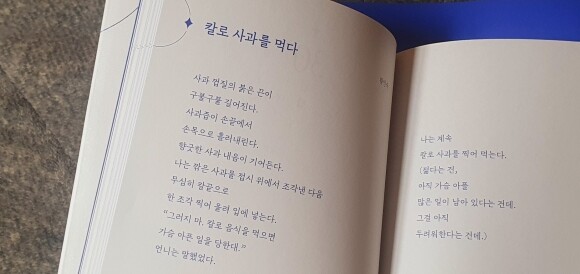 칼로 사과를 먹다
사과 껍질의 붉은 끈이
구불구불 길어진다.
사과즙이 손끝에서
손목으로 흘러내린다.
향긋한 사과 내음이 기어든다.
나는 깎은 사과를 접시 위에서 조각낸 다음
무심히 칼끝으로
한 조각 찍어 올려 입에 넣는다.
"그러지 마. 칼로 음식을 먹으면
가슴 아픈 일을 당한대."
언니는 말했었다.
나는 계속
칼로 사과를 찍어 먹는다.
(젊다는 건,
아직 가슴 아플
많은 일이 남아 있다는 건데.
그걸 아직
두려워한다는 건데.)